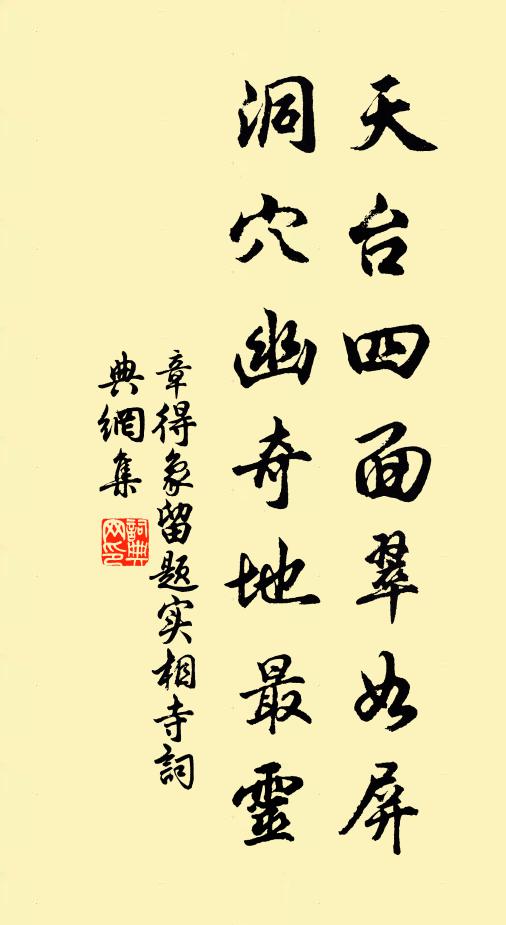 天台四面翠如屏
洞穴幽奇地最靈
章得象留题实相寺詞
典網集
詞典
网印